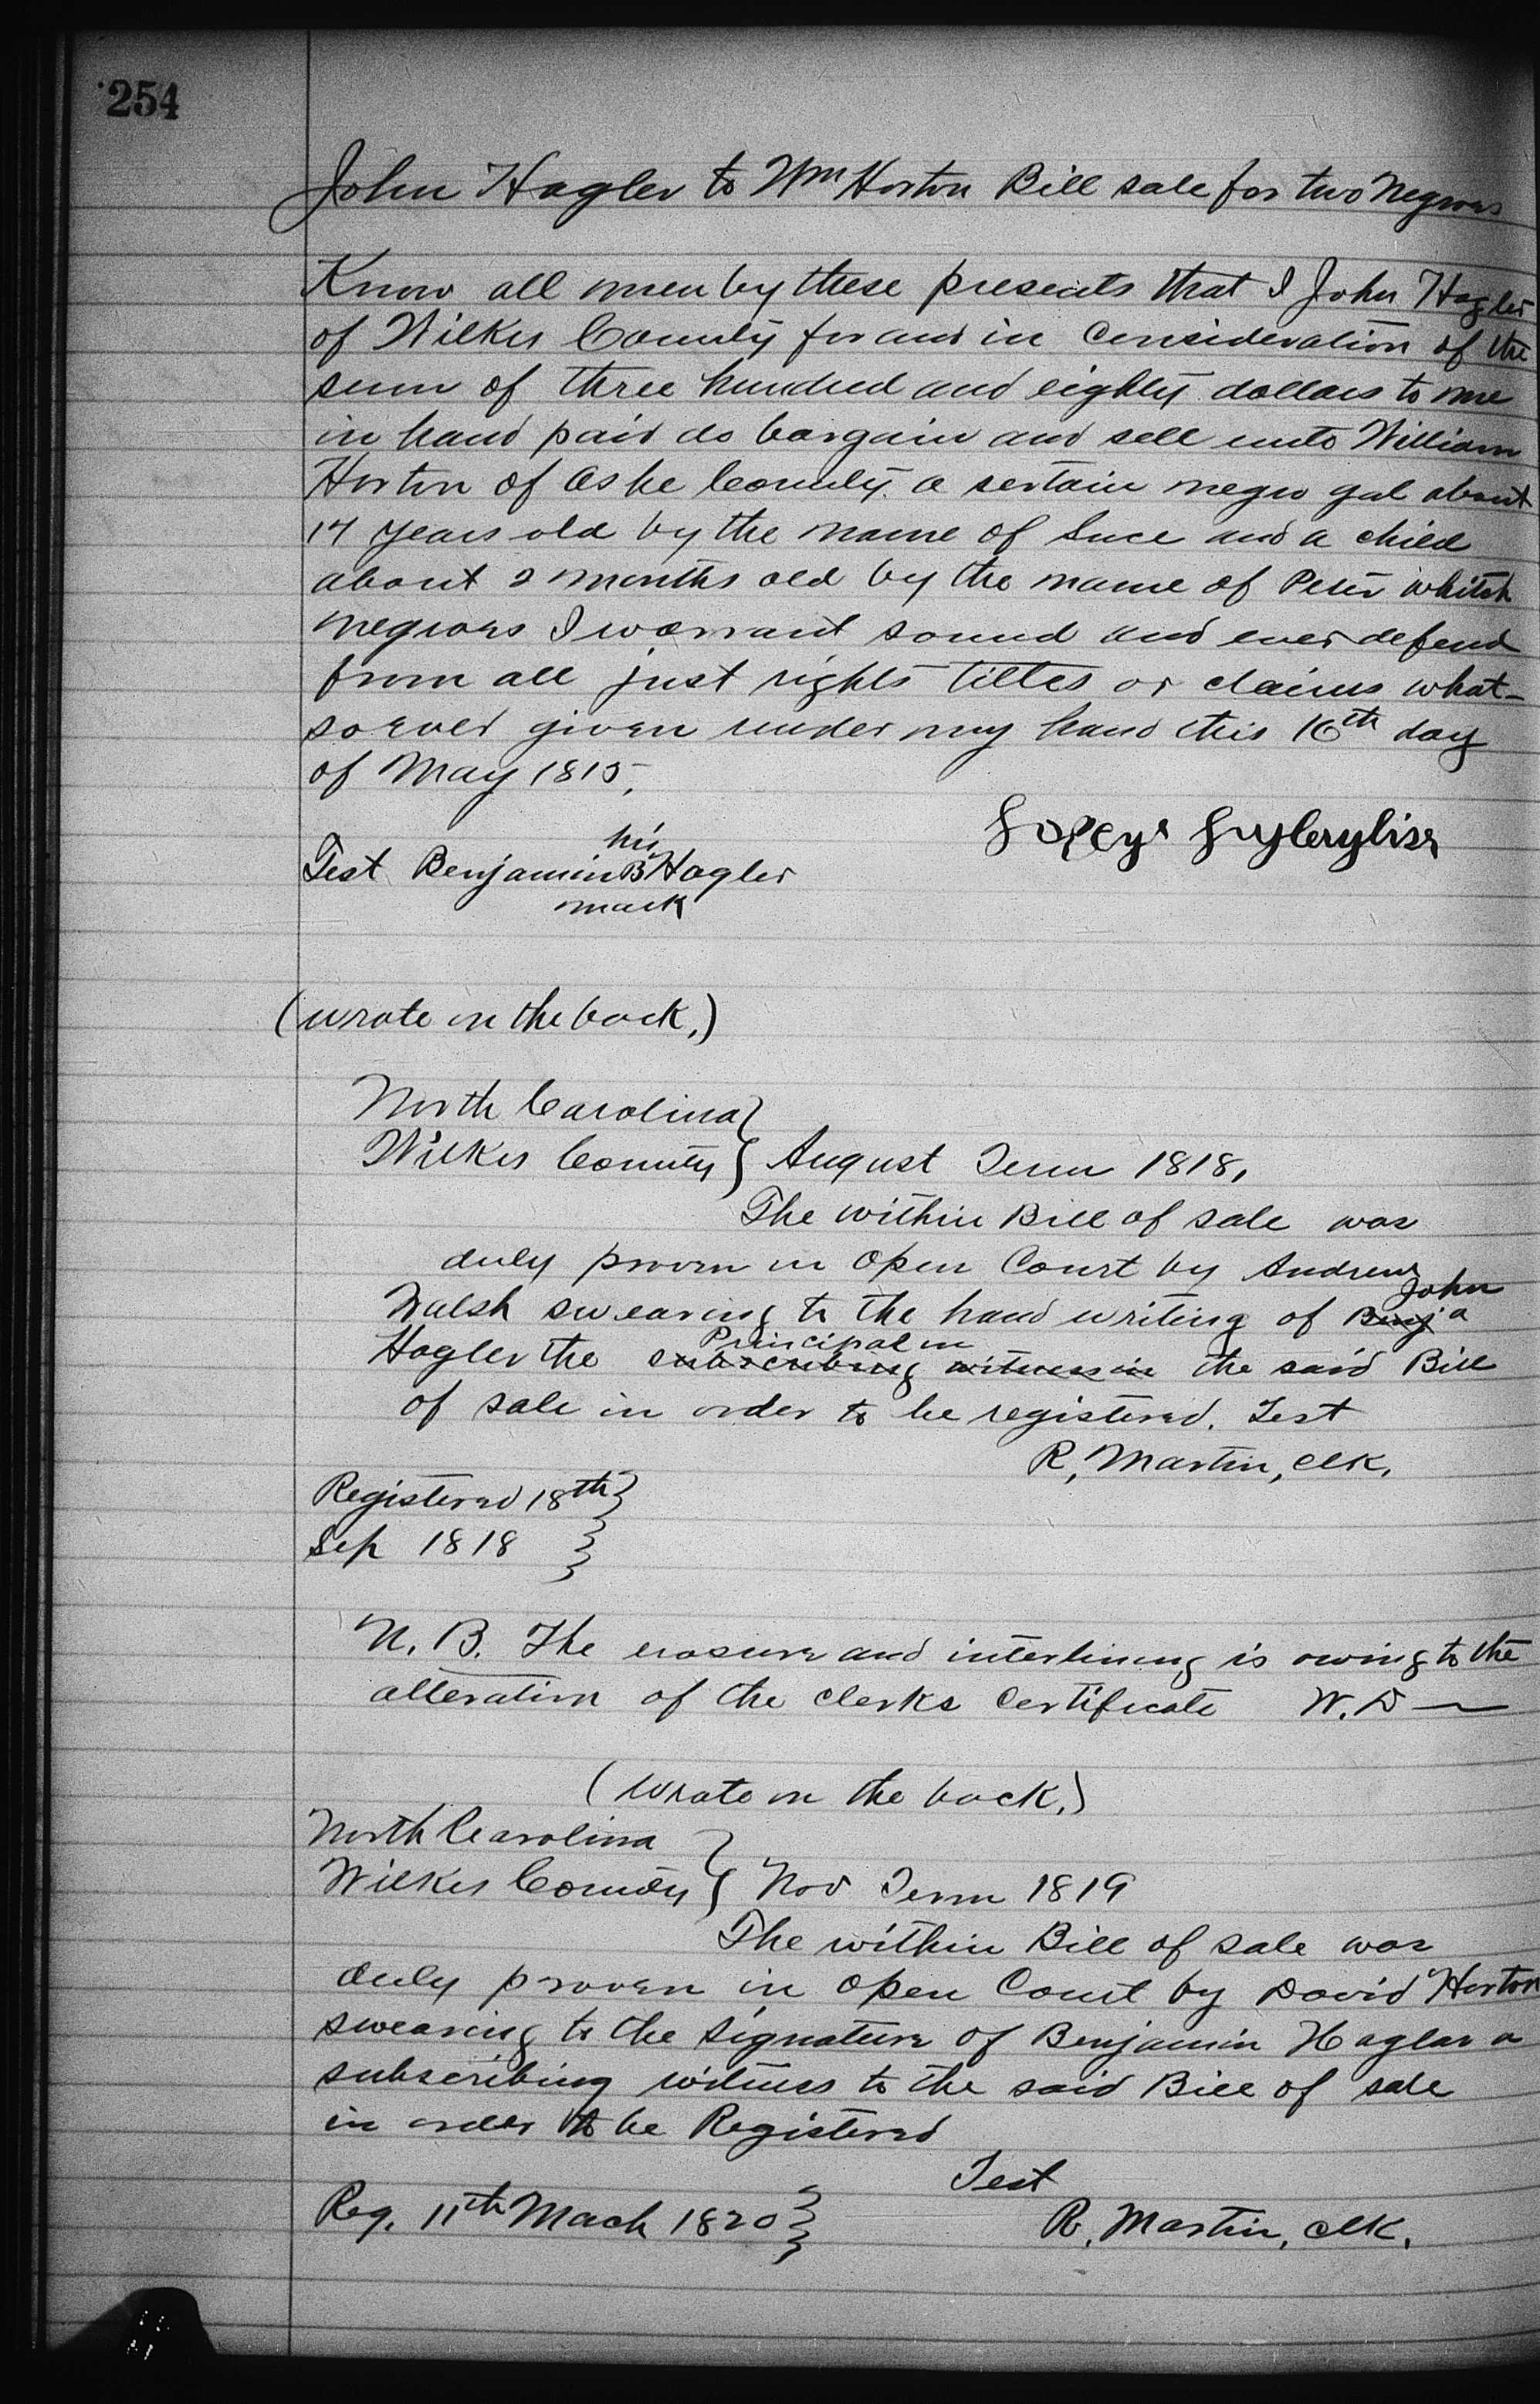 254
John Hagler to Wm Horton Bill sale for two Negroes
Know all men by these presents that I John Hagler
of Wilkes County for and in Consideration of the
sum of three hundred and eighty dollars to me
in hand paid do bargain and sell unto William
Horton of Ashe County a sertain negro gal about
14 years old by the name of Suce and a child
about 2 months old by the name of Peter whitch
negroes I warrant sound and ever defend
from all just rights titles or claims what-
soever given under my hand this 16th day
of May 1815.
his
Test Benjamin B Hagler
mark
(wrote on the back.)
North Carolina
Wilkes County } August Term 1818,
The within Bill of sale was
duly proven in open Court by Andrew
John
Walsh swearing to the hand writing of Benj a
Principal in
Hagler the subscribing witness in the said Bill
of sale in order to be registered. Test
R, Martin, clk.
Registered 18th }
Sep 1818 }
N. B. The erasure and interlining is owing to the
alteration of the clerks Certificate W. D —
(wrote on the back.)
North Carolina
Wilkes County } Nov Term 1819
The within Bill of sale was
duly proven in open Court by David Horton
swearing to the signature of Benjamin Haglar a
subscribing witness to the said Bill of sale
in order to be Registered
Test
Reg. 11th Mach 1820 }
R. Martin, clk.